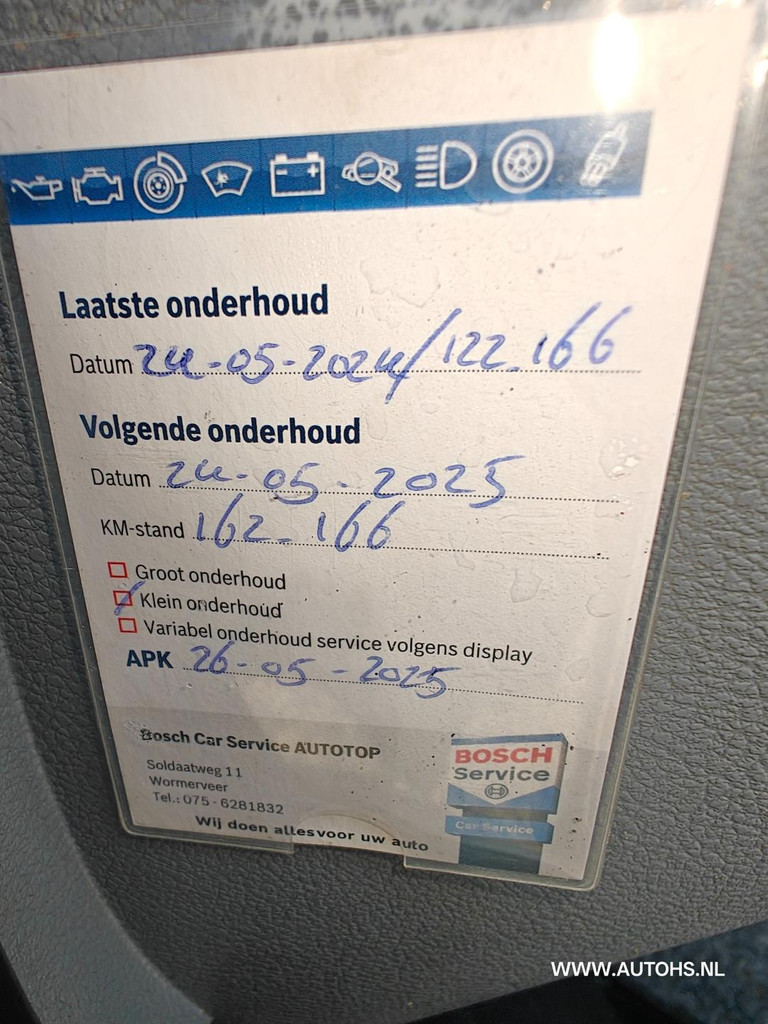 Laatste onderhoud
Datum 24-05-2024/122.166
Volgende onderhoud
Datum 24-05-2025
KM-stand 162.166
Groot onderhoud
Klein onderhoud
Variabel onderhoud service volgens display
APK 26-05-2025
Bosch Car Service AUTOTOP
Soldaatweg 11
Wormerveer
Tel.: 075-6281832
Wij doen allesvoor uw auto
BOSCH
Service
Car Service
WWW.AUTOHS.NL